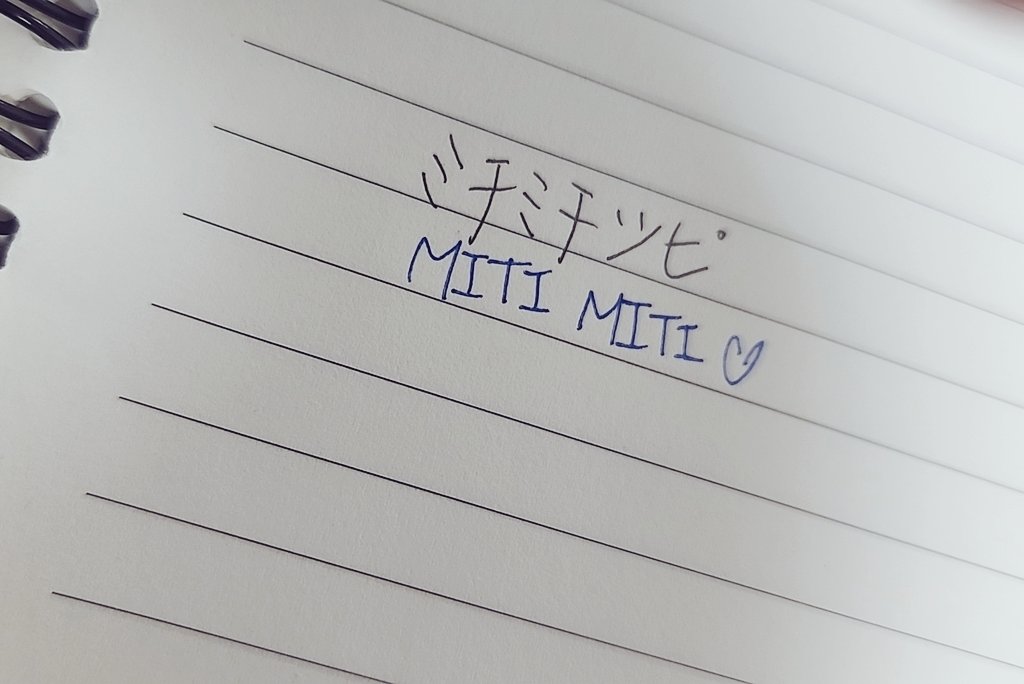 ミチミチッピ
MITI MITI♡